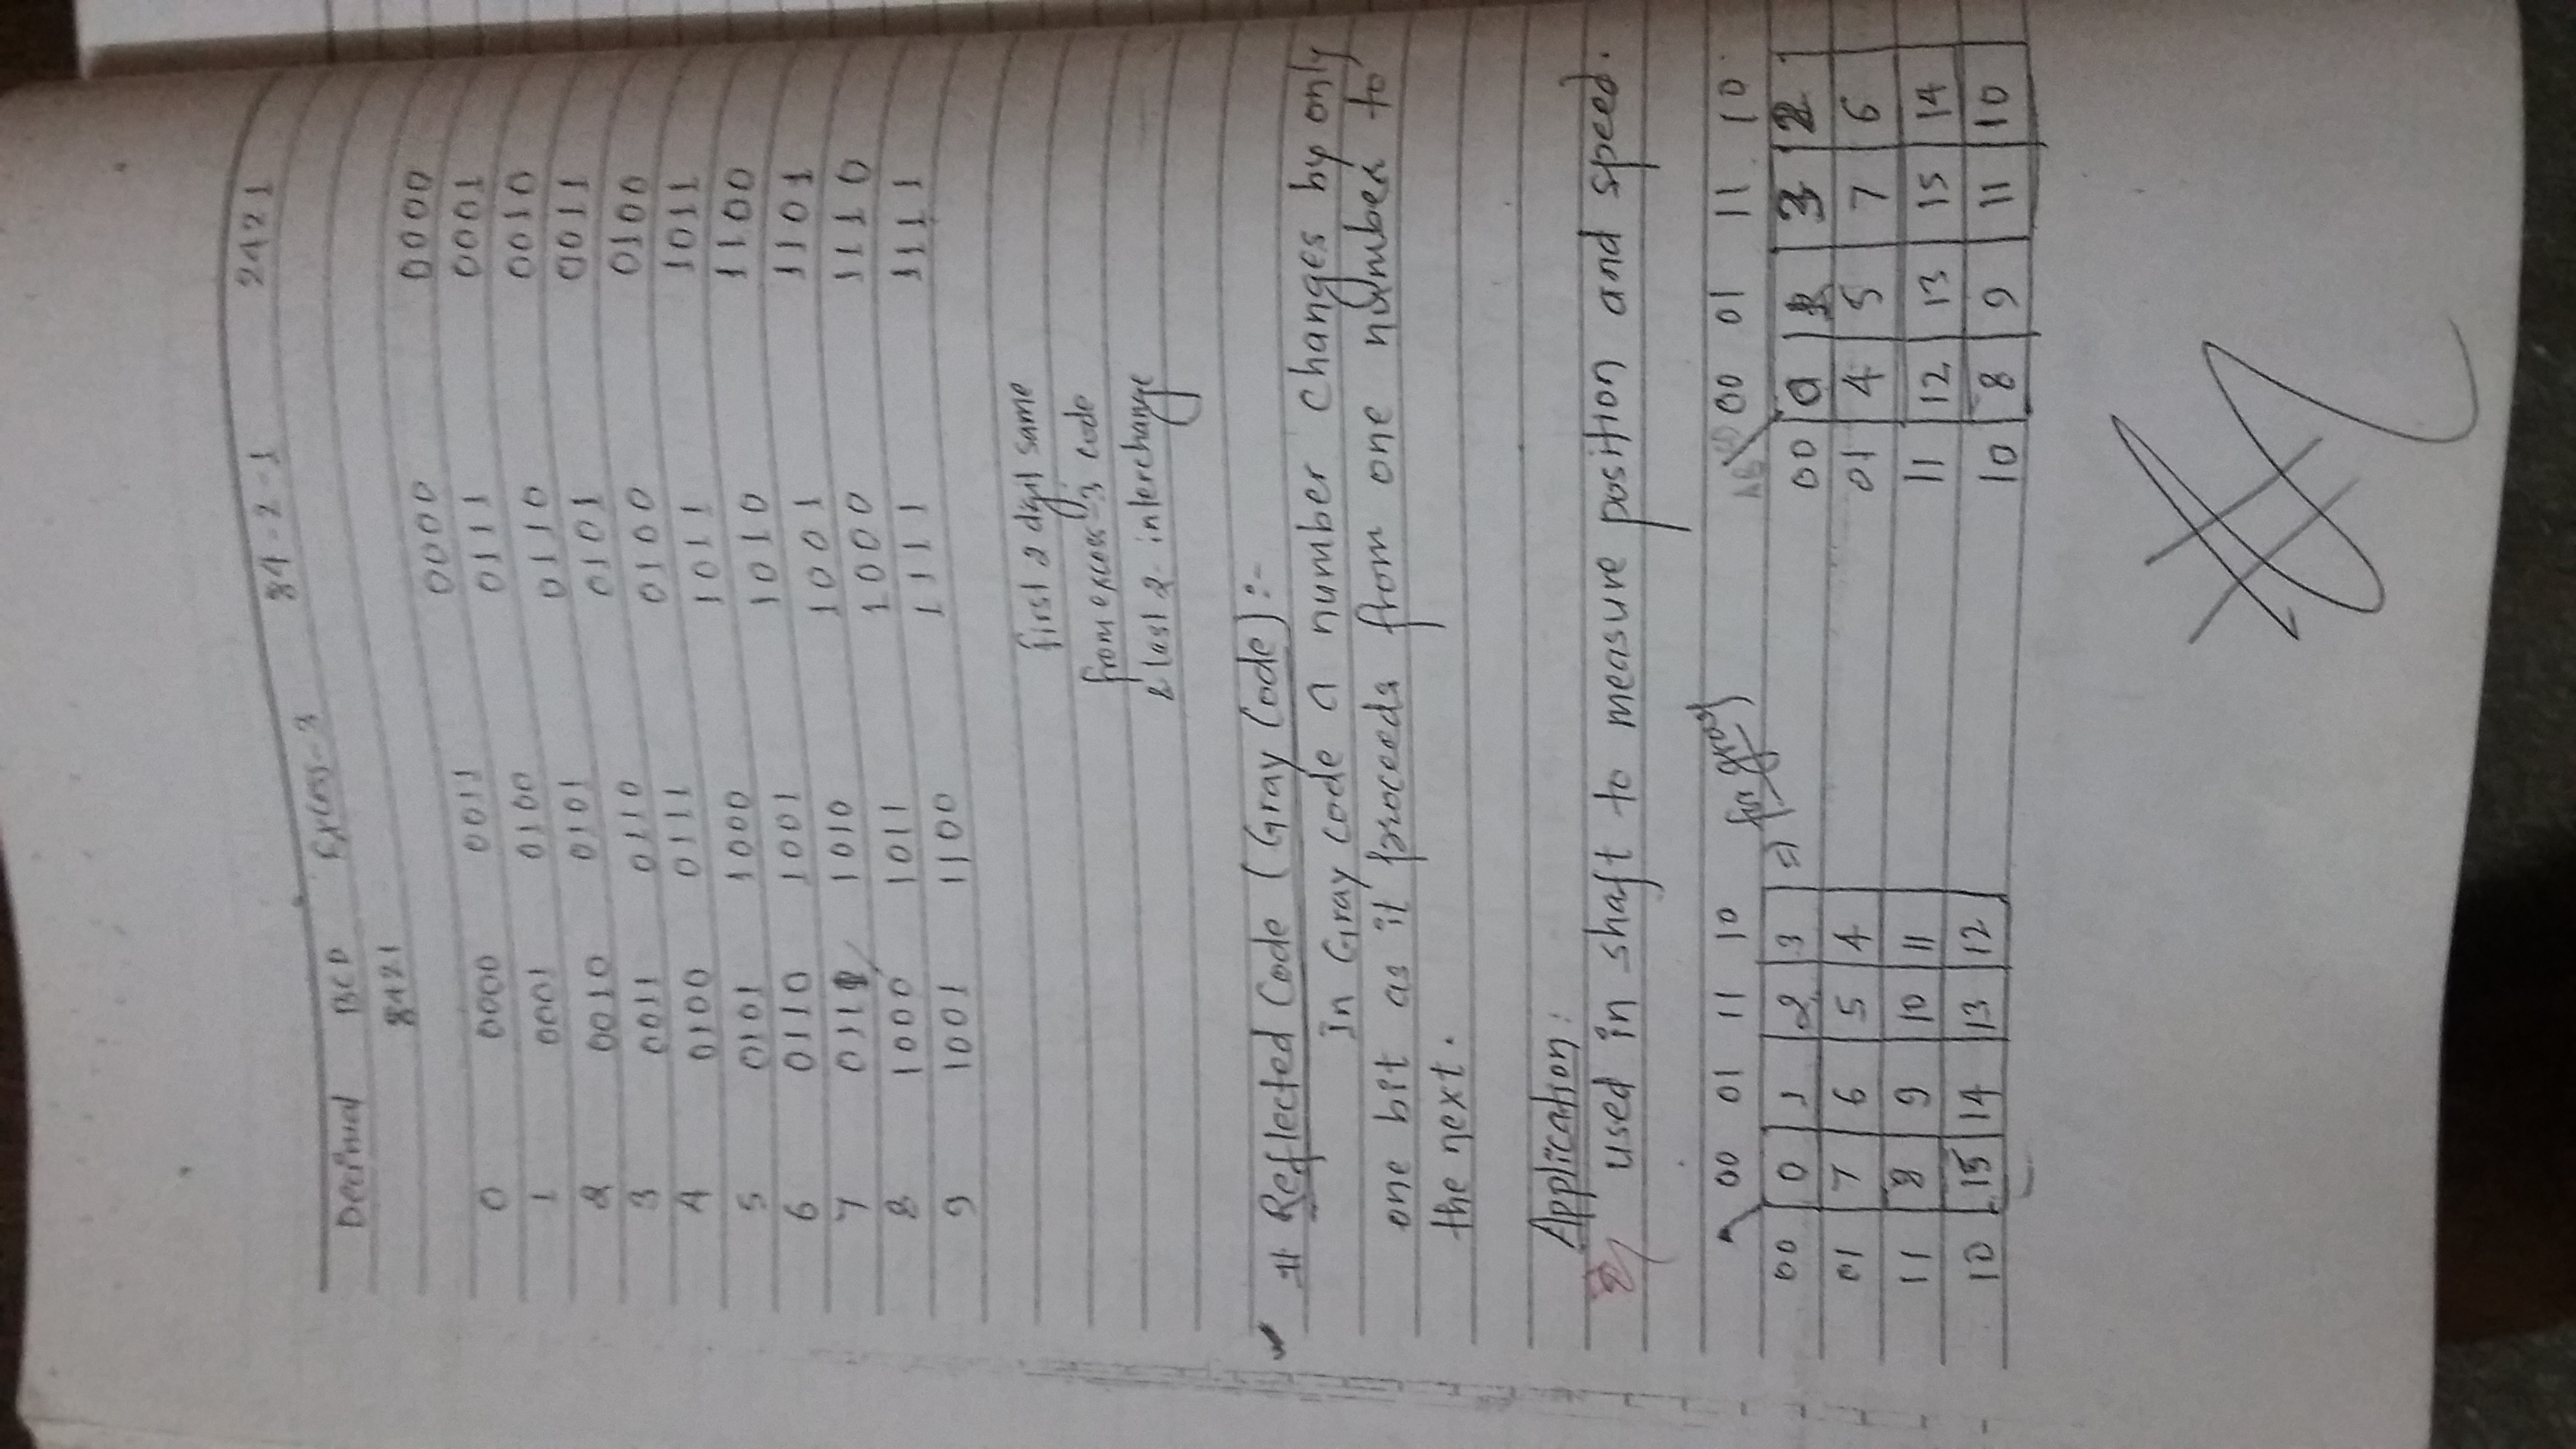 Decimal BCD Excess-3 84-2-1 2421
8421
0 0000 0011 0000 0000
1 0001 0100 0111 0001
2 0010 0101 0110 0010
3 0011 0110 0101 0011
4 0100 0111 0100 0100
5 0101 1000 1011 1011
6 0110 1001 1010 1100
7 0111 1010 1001 1101
8 1000 1011 1000 1110
9 1001 1100 1111 1111
first 2 digit same
from excess-3 code
& last 2 interchange
# Reflected Code (Gray Code) :-
In Gray code a number changes by only
one bit as it proceeds from one number to
the next.
Application:
used in shaft to measure position and speed.
00 01 11 10 => for gray
00 0 1 2 3
01 7 6 5 4
11 8 9 10 11
10 15 14 13 12
AB CD 00 01 11 10
00 0 1 3 2
01 4 5 7 6
11 12 13 15 14
10 8 9 11 10